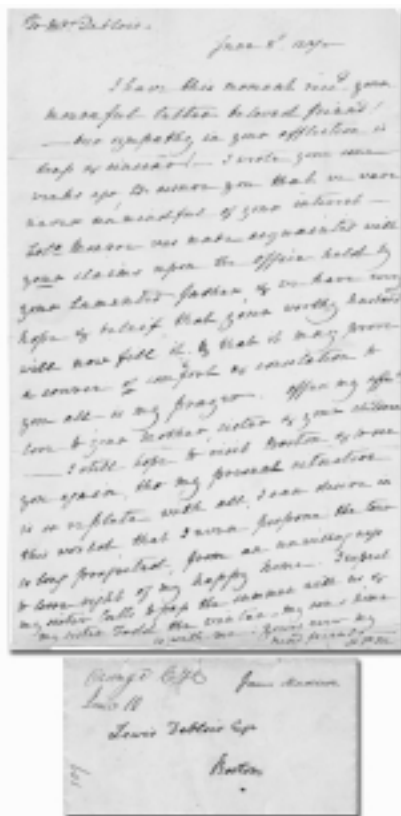 To Mrs Deblois.
June 8th
I have this moment recd. your
mournful letter beloved friend!
— our sympathy in your affliction is
deep & sincere! — I wrote you some
weeks ago to assure you that we were
never unmindful of your interest —
Monroe was made acquainted with
your claims upon the office held by
your lamented father, & we have every
hope & beleif that your worthy husband
will now fill it, & that it may prove
a source of comfort & consolation to
you all is my prayer. Offer my
love to your mother sister & your children
— I still hope to visit Boston & to see
you again, tho my present situation
is so replete with all I can desire in
this world, that I even postpone the tour
so long prospected, from an unwillingness
to lose sight of my happy home. I expect
my sister Cutts to pass the summer with us &
my sister Todd the winter. my son's time
is with me. yours ever my
friend
Orange CHO
June 10
James Madison
Lewis Deblois Esqr
Boston